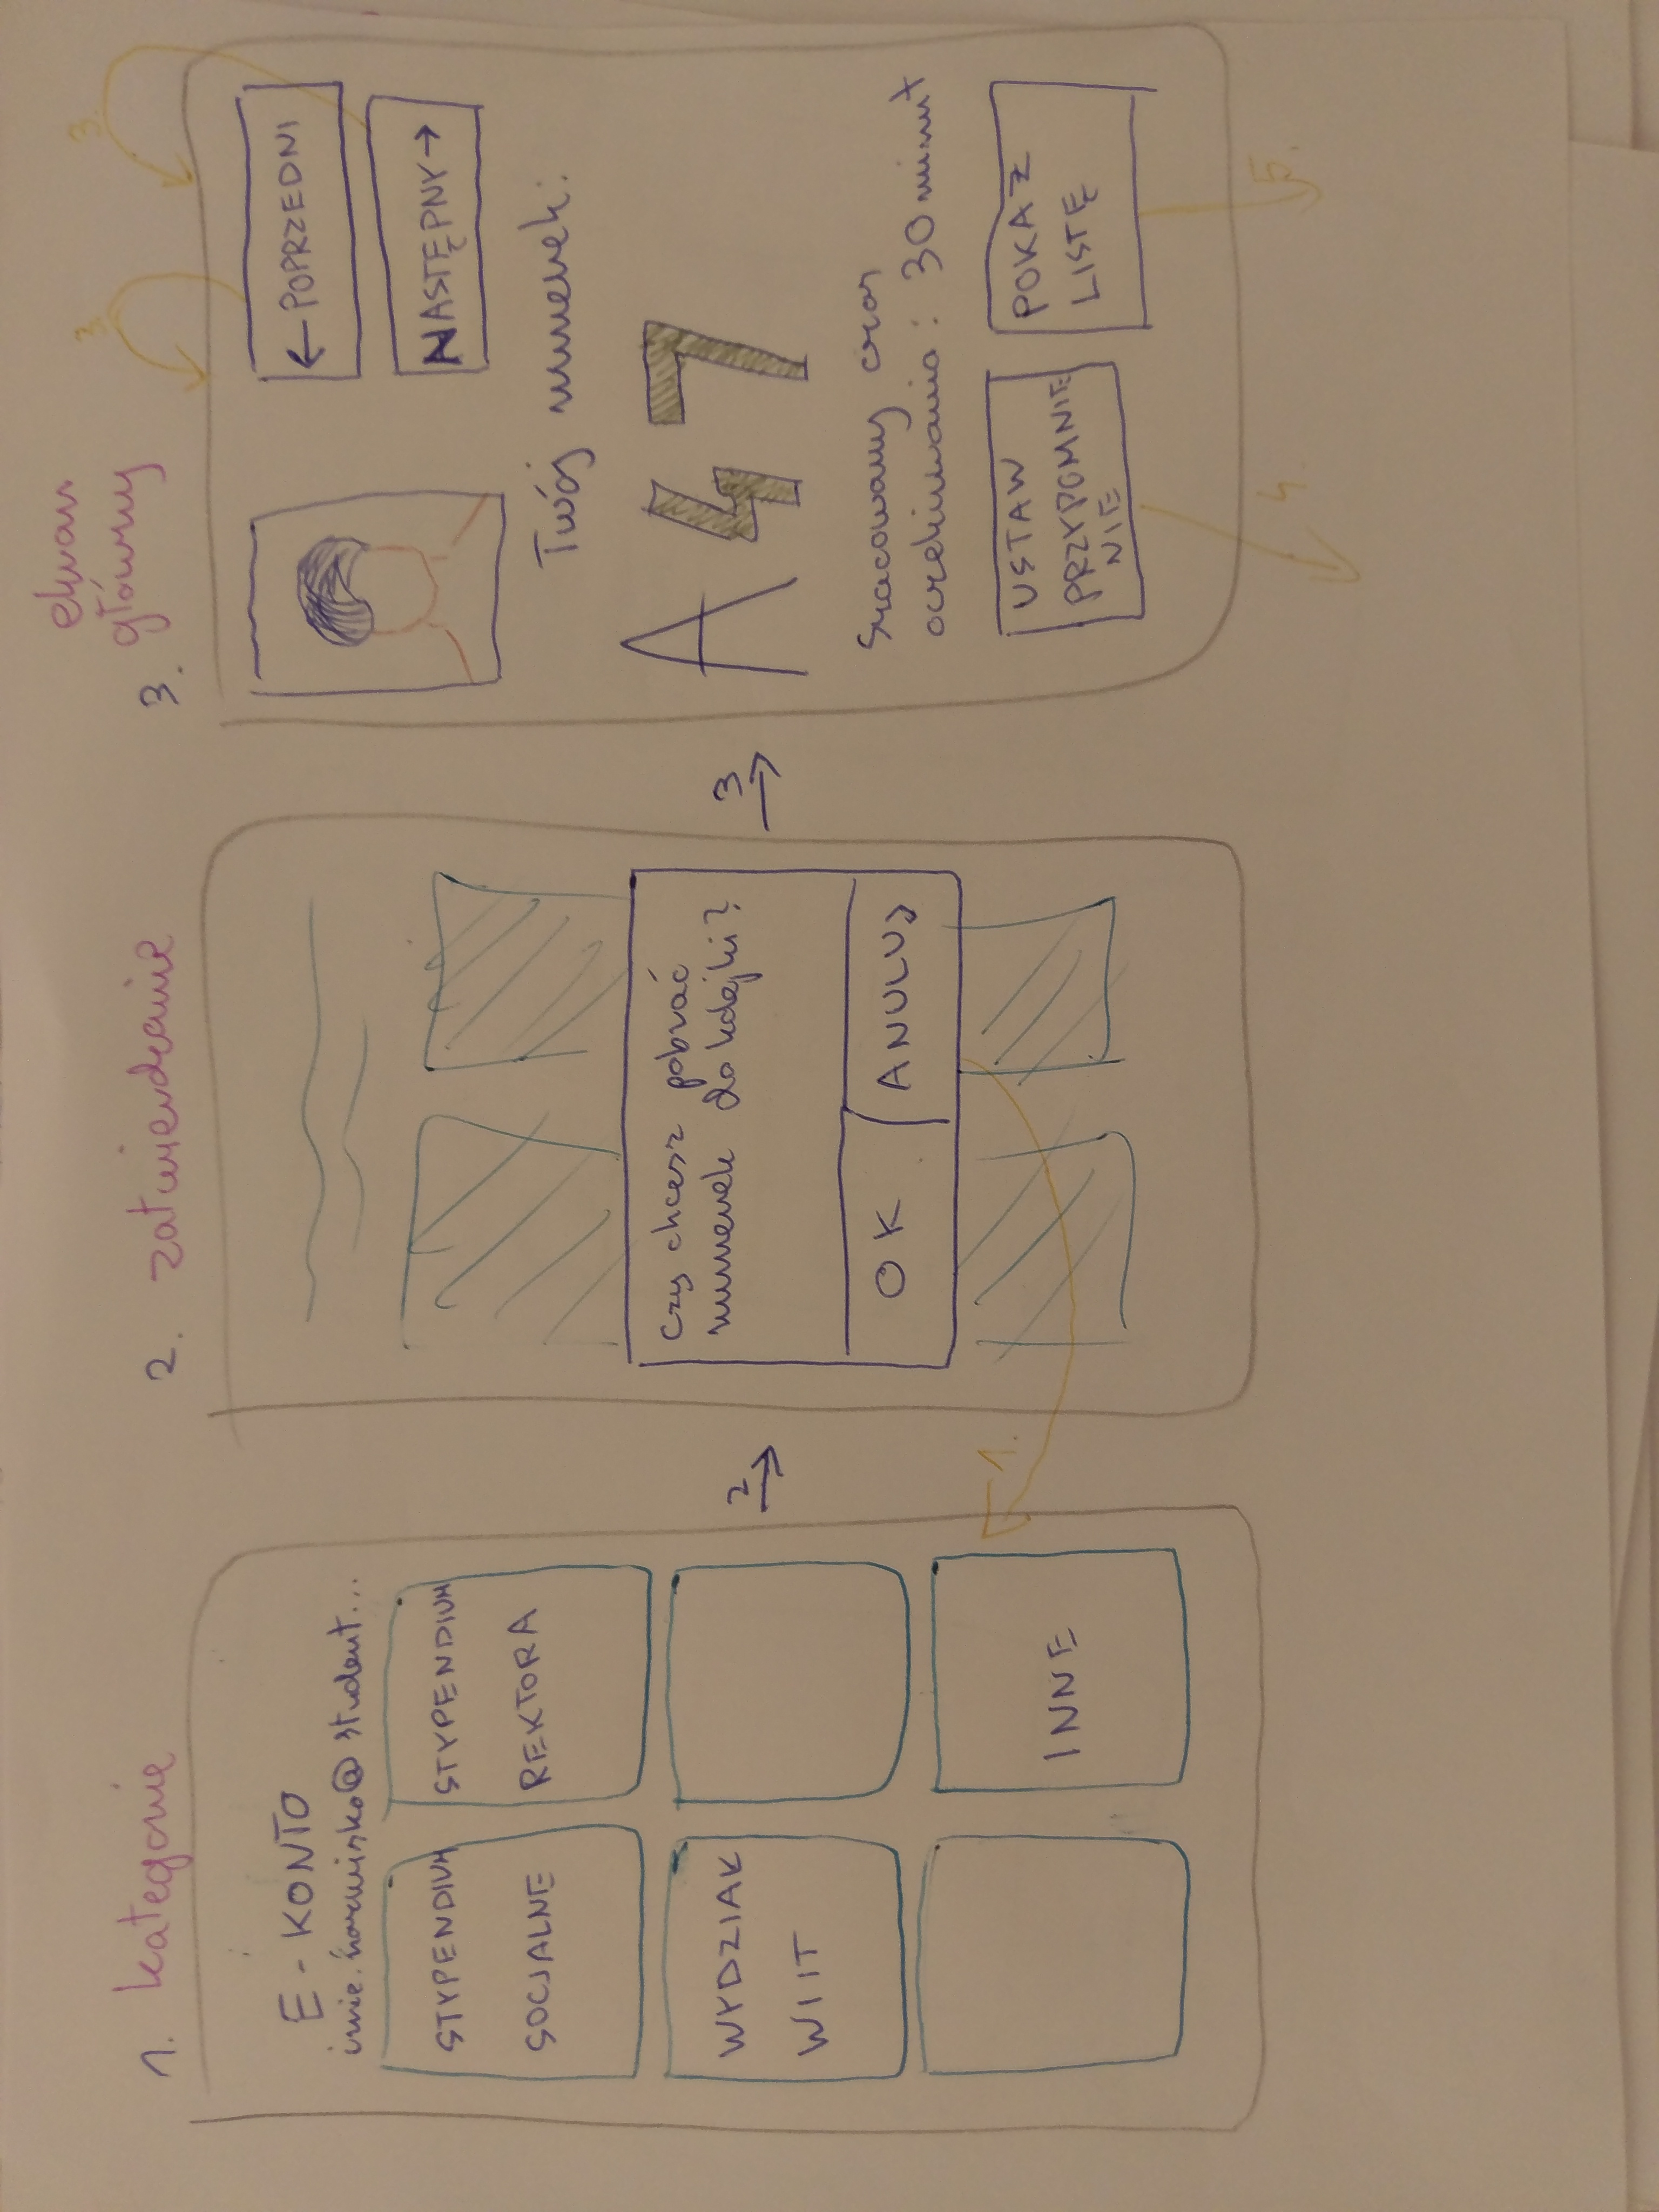 1. kategorie
E-KONTO
imie.nazwisko@student...
STYPENDIUM
SOCJALNE
STYPENDIUM
REKTORA
WYDZIAŁ
WIIT
INNE
2
1.
2. zatwierdzenie
Czy chcesz pobrać
numerek do kolejki?
OK
ANULUJ
3
3. ekran
główny
3.
3.
← POPRZEDNI
NASTĘPNY →
Twój numerek:
A 47
Szacowany czas
oczekiwania: 30 minut
USTAW
PRZYPOMNIE
NIE
POKAŻ
LISTĘ
4.
5.